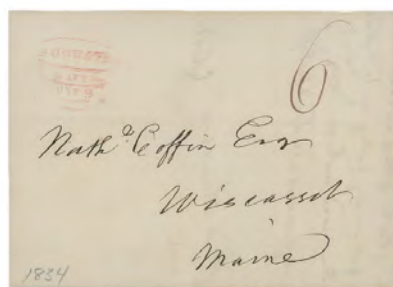 6
Nath.l Coffin Esq
Wiscasset
Maine
1834